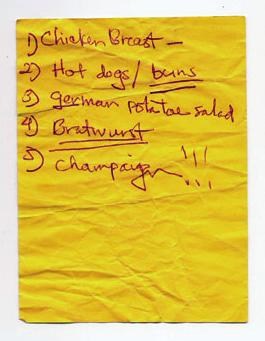 1) Chicken Breast —
2) Hot dogs/ buns
3) german potatoe salad
4) Bratwurst
5) champaign !!!